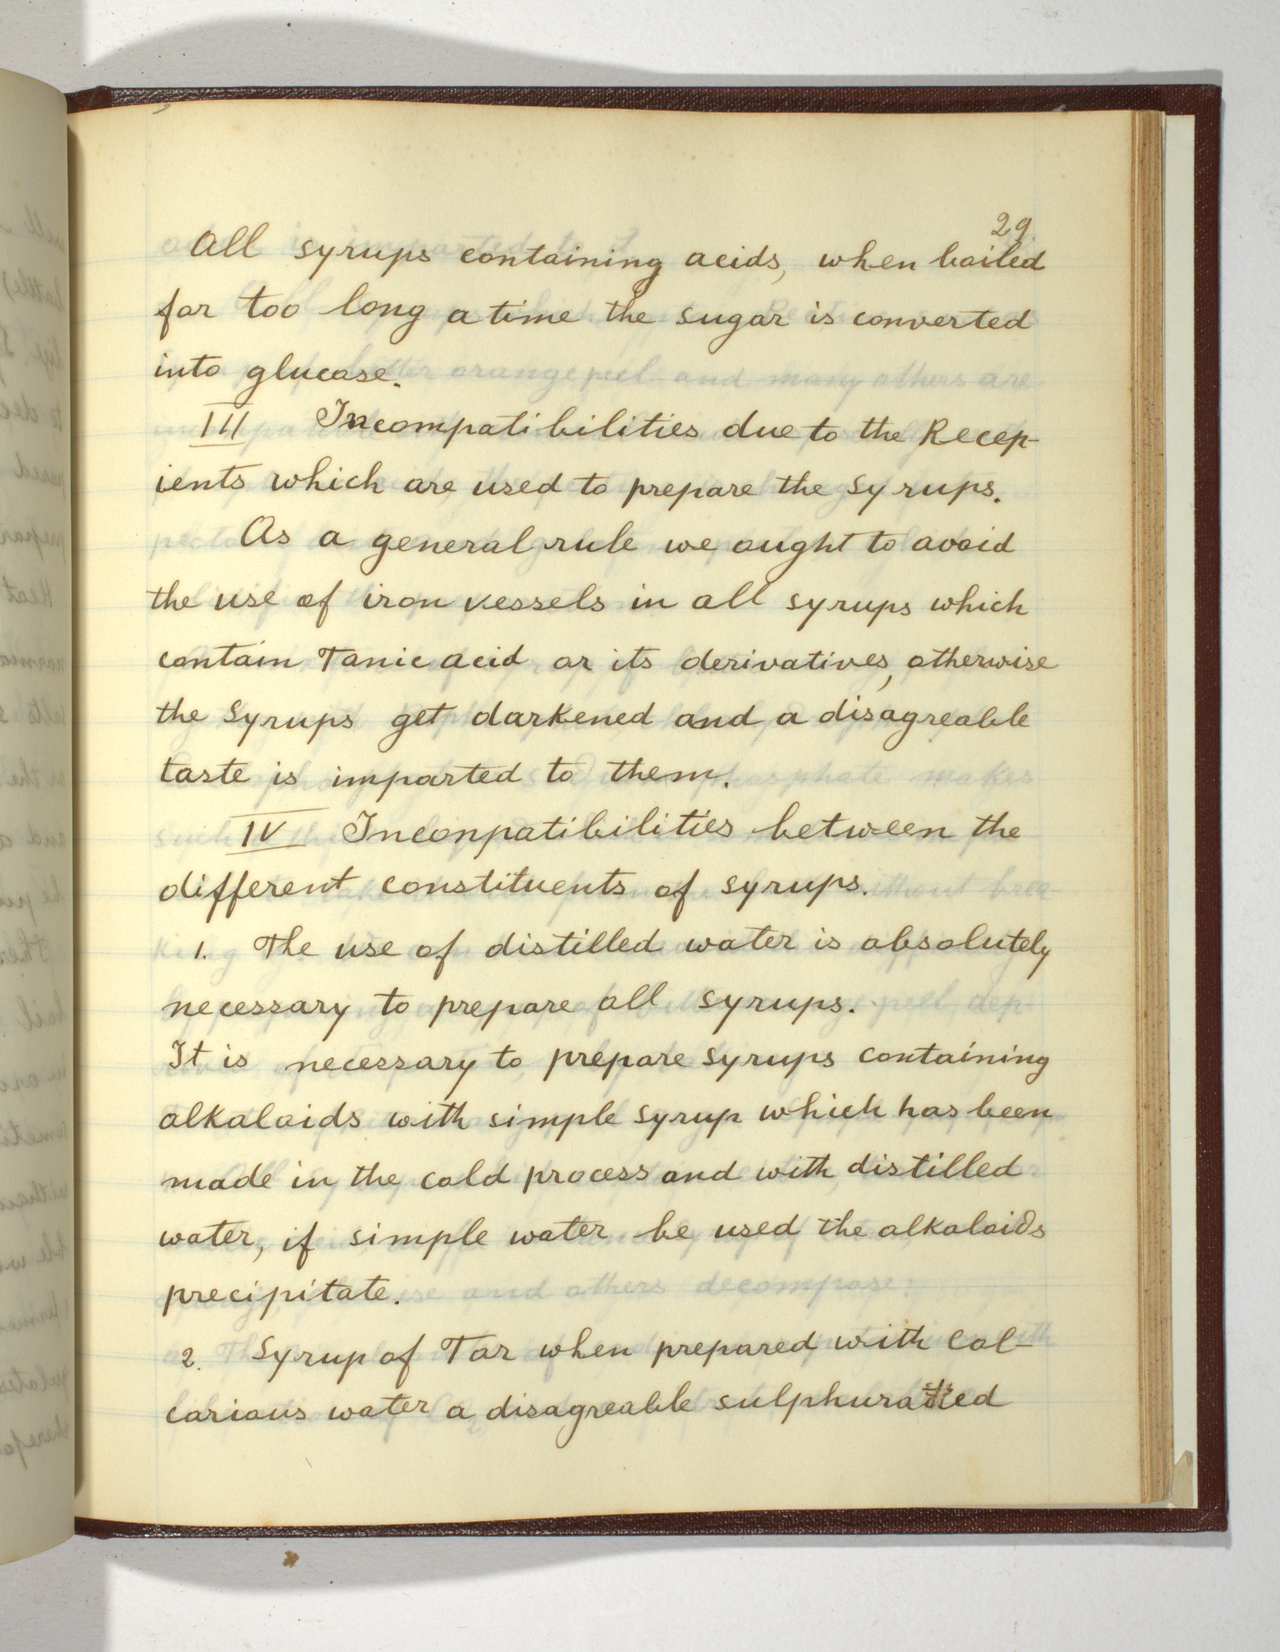 29
All syrups containing acids, when boiled
for too long a time the sugar is converted
into glucose.
III Incompatibilities due to the Recep-
ients which are used to prepare the syrups.
As a general rule we ought to avoid
the use of iron vessels in all syrups which
contain Tanic acid or its derivatives, otherwise
the Syrups get darkened and a disagreable
taste is imparted to them.
IV Inconpatibilities between the
different constituents of syrups.
1. The use of distilled water is absolutely
necessary to prepare all syrups.
It is necessary to prepare syrups containing
alkaloids with simple syrup which has been
made in the cold process and with distilled
water, if simple water be used the alkaloids
precipitate.
2. Syrup of Tar when prepared with Cal-
carious water a disagreable